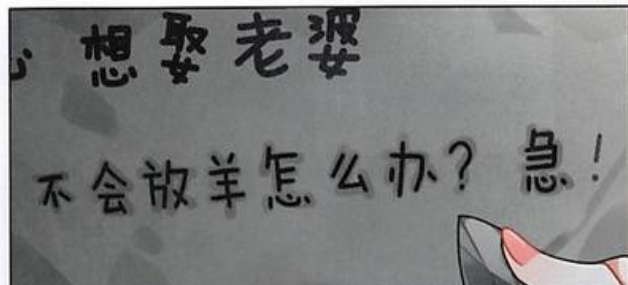 想娶老婆
不会放羊怎么办？急！